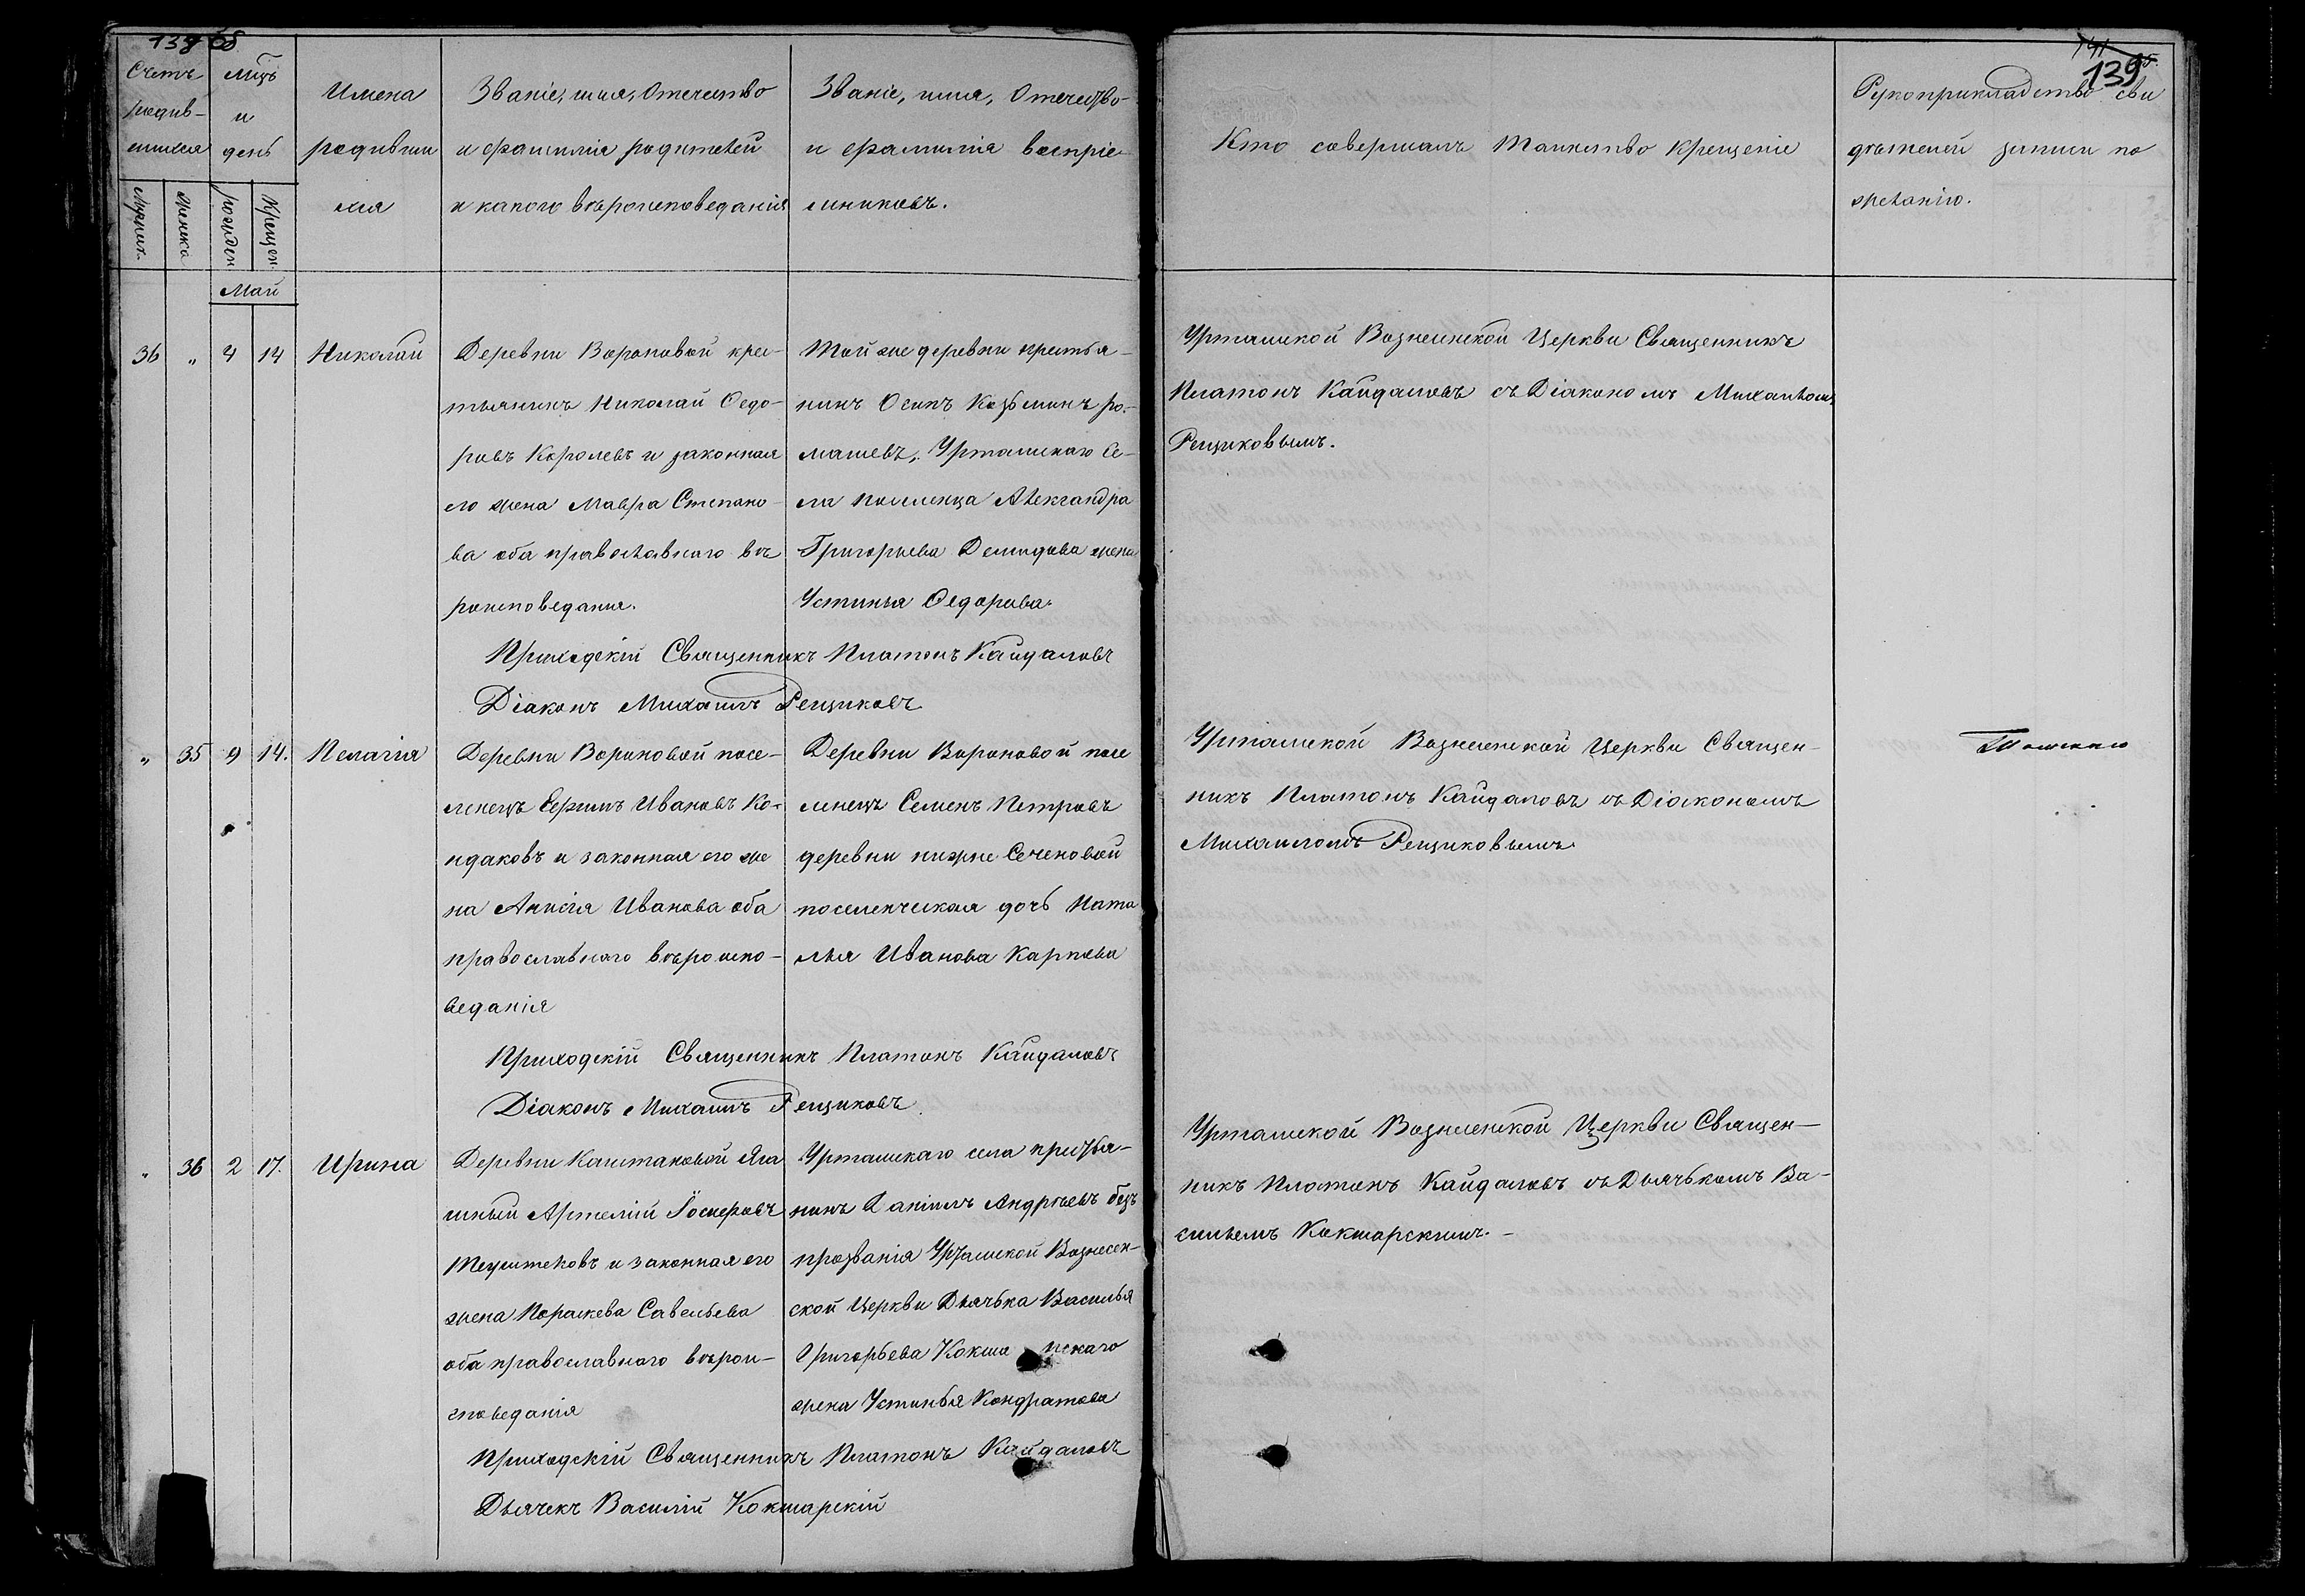 138 об
Счетъ родившихся
Мужск. Женска
мцъ и день
рожден Крещен
Имена родившихся
Званіе, имя, Отечество
и фамилія родителей
и какого вѣроисповеданія
Званіе, имя, Отечество
и фамилія воспріемниковъ.
Май
36 „ 4 14 Николай
Деревни Вороновой крес-
тьянинъ Николай Ѳедо-
ровъ Королевъ и законная
его жена Мавра Степано-
ва оба православнаго вѣ
роисповедания.
Той же деревни крестья-
нинъ Осипъ Козьминъ ро-
машевъ, Урташскаго Се-
ла поселенца Александра
Григорьева Демидова жена
Устинья Ѳедорова.
Приходскій Священникъ Платонъ Кайдаловъ
Діаконъ Михаилъ Рещиковъ
„ 35 9 14. Пелагія
Деревни Вороновой посе-
ленецъ Ефимъ Ивановъ Ко-
ндаковъ и законная его же
на Анисія Иванова оба
православнаго вѣроиспо-
веданія
Деревни Вороновой посе
ленецъ Семенъ Петровъ
деревни нижне Сеченовой
поселенческая дочь Ната
лья Иванова Карпова
Приходскій Священникъ Платонъ Кайдаловъ
Діаконъ Михаилъ Рещиковъ
„ 36 2 17. Ирина
Деревни Каштаковой Яса
шный Артемій
и законная его
жена Параскева Савельева
оба православнаго вѣрои-
споведанія
Урташскаго села крестья-
нинъ Даніилъ Андрѣевъ безъ
прозванія Урташской Вознесен-
ской Церкви Дьячька Василья
Григорьева Кокшарскаго
жена Устинья Кондратова
Приходскій Священникъ Платонъ Кайдаловъ
Дьячекъ Василій Кокшарскій
141
139
Кто совершалъ Таинство Крещеніе
Рукоприкладство сви
дѣтелей записи по
желанію.
Урташской Вознесенской Церкви Священникъ
Платонъ Кайдаловъ съ Діакономъ Михаиломъ
Рещиковымъ.
Урташской Вознесенской Церкви Священ-
никъ Платонъ Кайдаловъ съ Діакономъ
Михаиломъ Рещиковымъ
Урташской Вознесенской Церкви Священ-
никъ Платонъ Кайдаловъ съ Дьячькомъ Ва-
сильемъ Кокшарскимъ. -